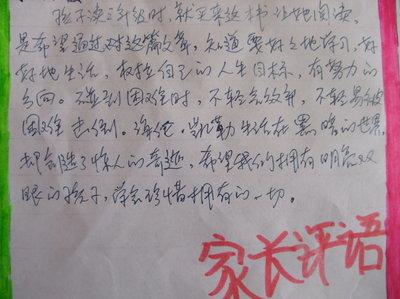 孩子读三年级时,就买来这本书让她阅读,
是希望通过对这篇文章,知道要好好地学习,好
好地生活,树立自己的人生目标,有努力的
方向。不碰到困难时,不轻言放弃,不轻易被
困难击倒。海伦·凯勒生活在黑暗的世界,
却创造了惊人的奇迹,希望我们拥有明亮双
眼的孩子,学会珍惜拥有的一切。
家长评语